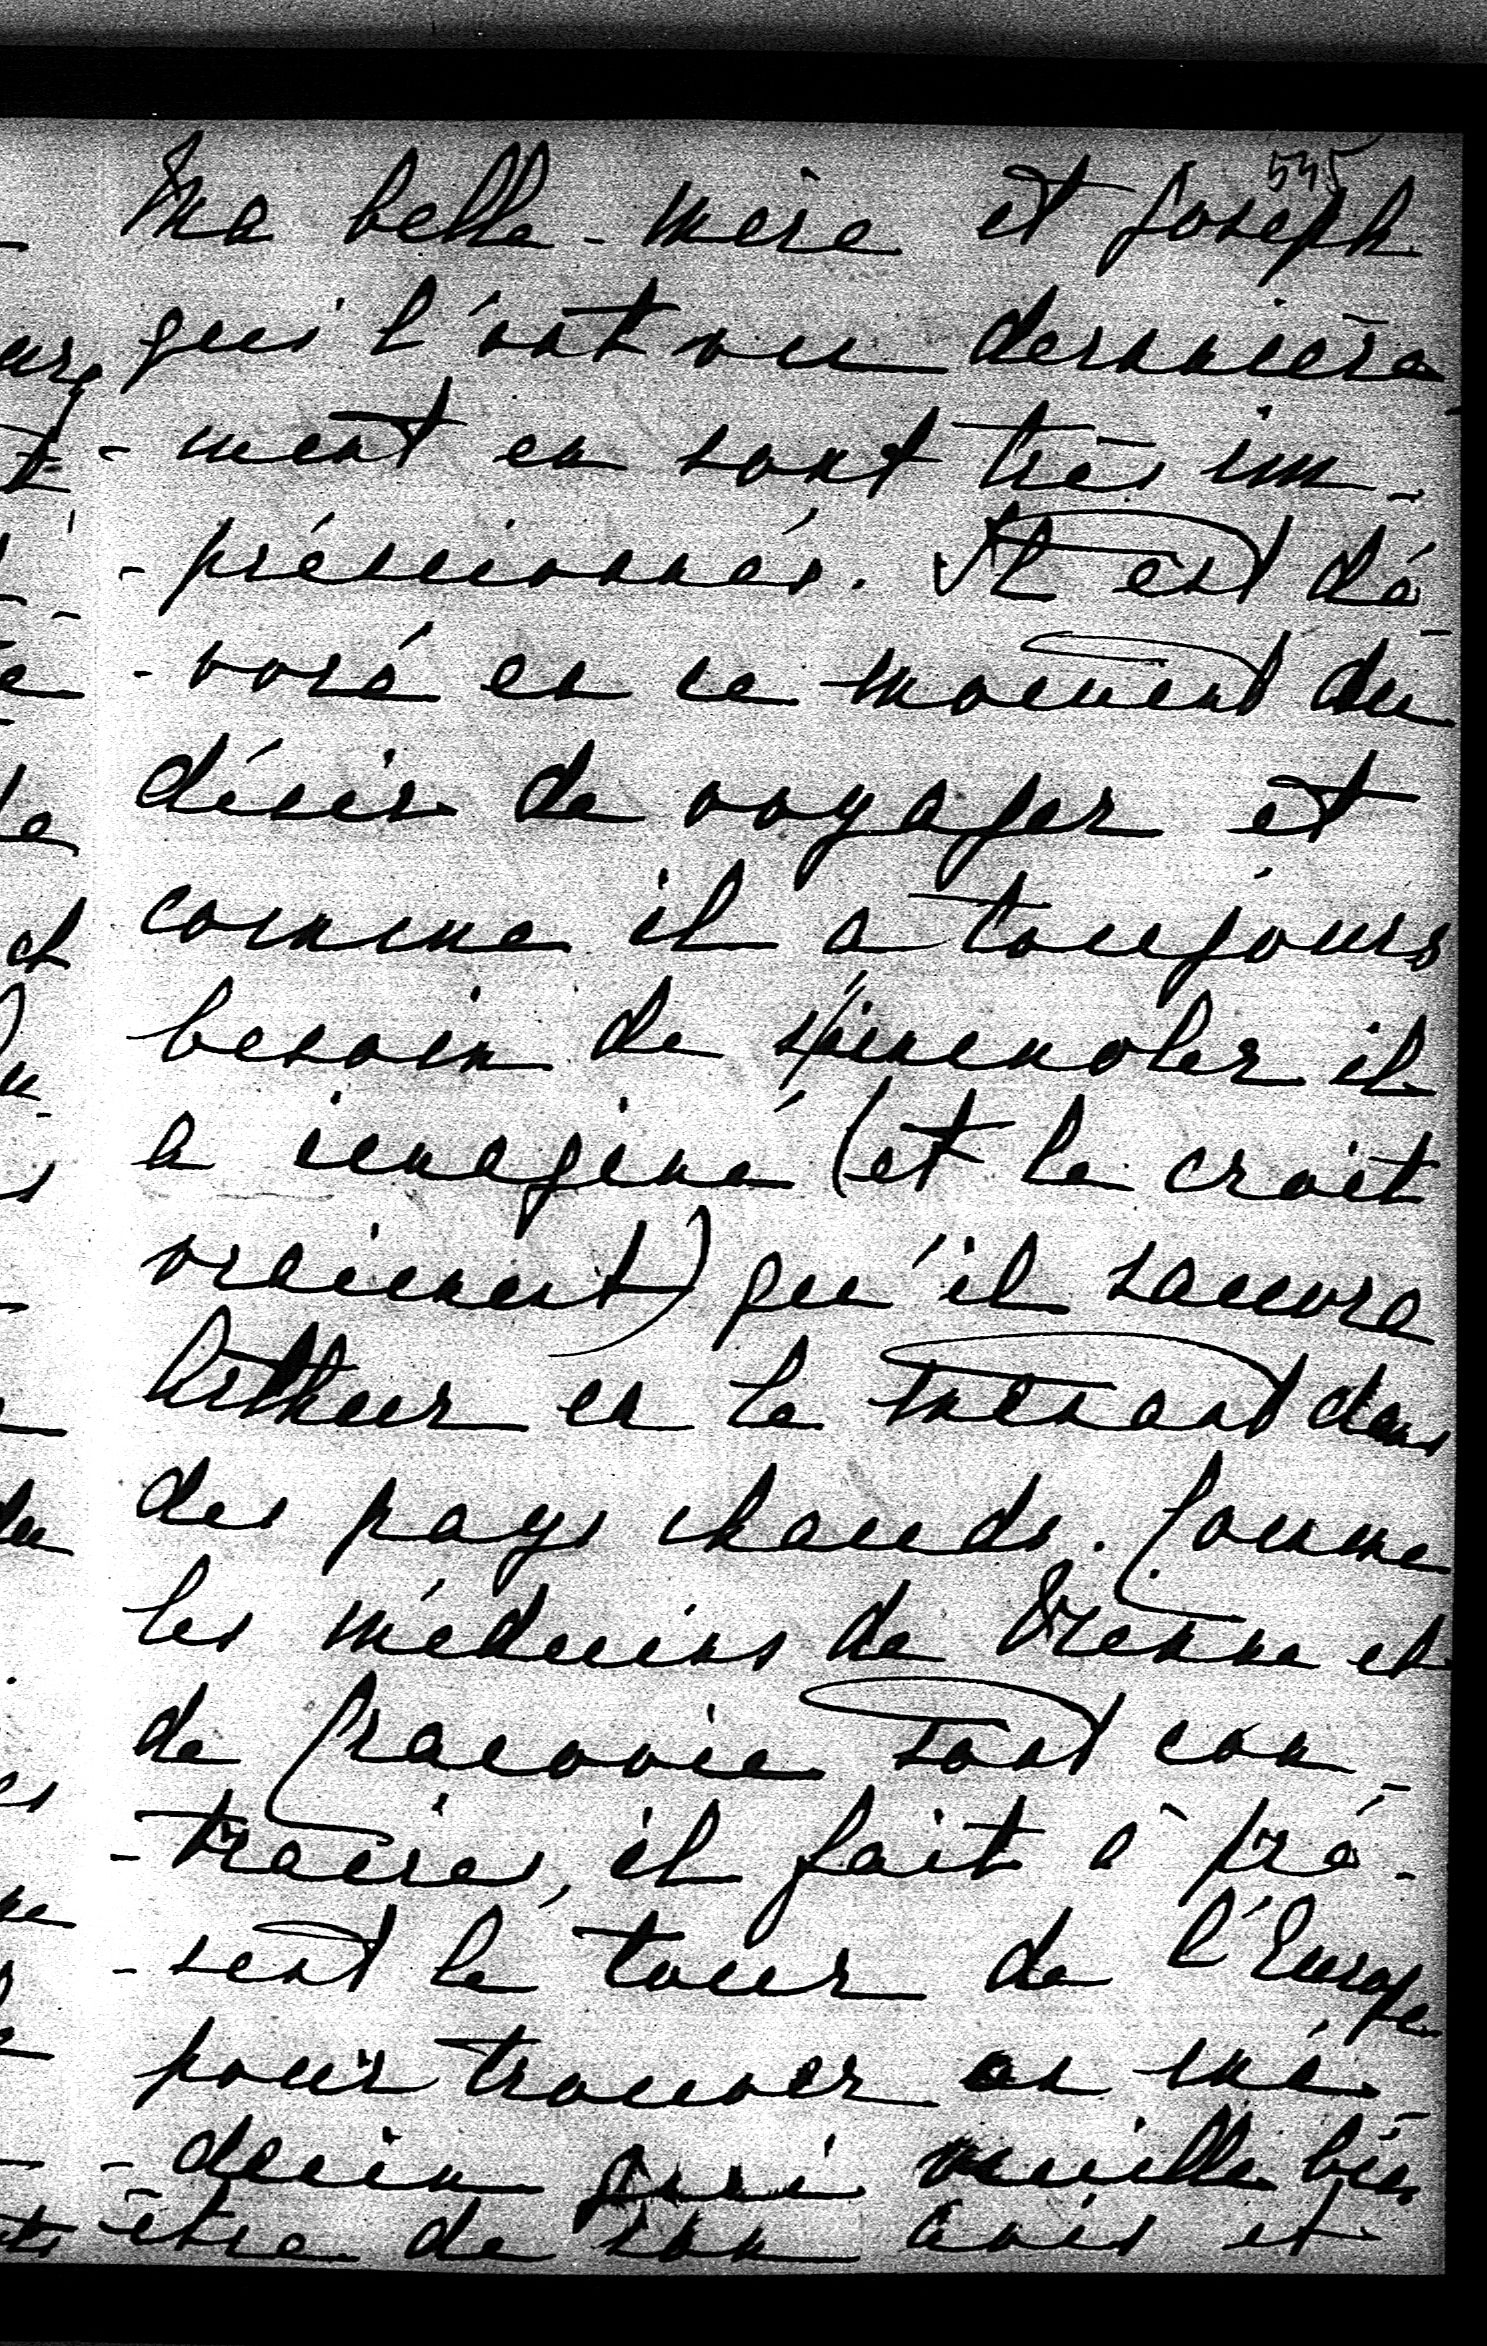 545
Ma belle-mère et Joseph
qui l'ont vu dernière
-ment en sont très im-
-préssionnés. Il est dé-
-voré en ce moment du
désir de voyager et
comme il a toujours
besoin de s'immoler il
a imaginé (et le croit
vraiment) qu'il sauvera
Arthur en le menant dans
des pays chauds. Comme
les médecins de Vienne et
de Cracovie sont con-
-traires, il fait à pré-
-sent le tour de l'Europe
pour trouver un mé-
-decin qui veuille bien
être de son avis et